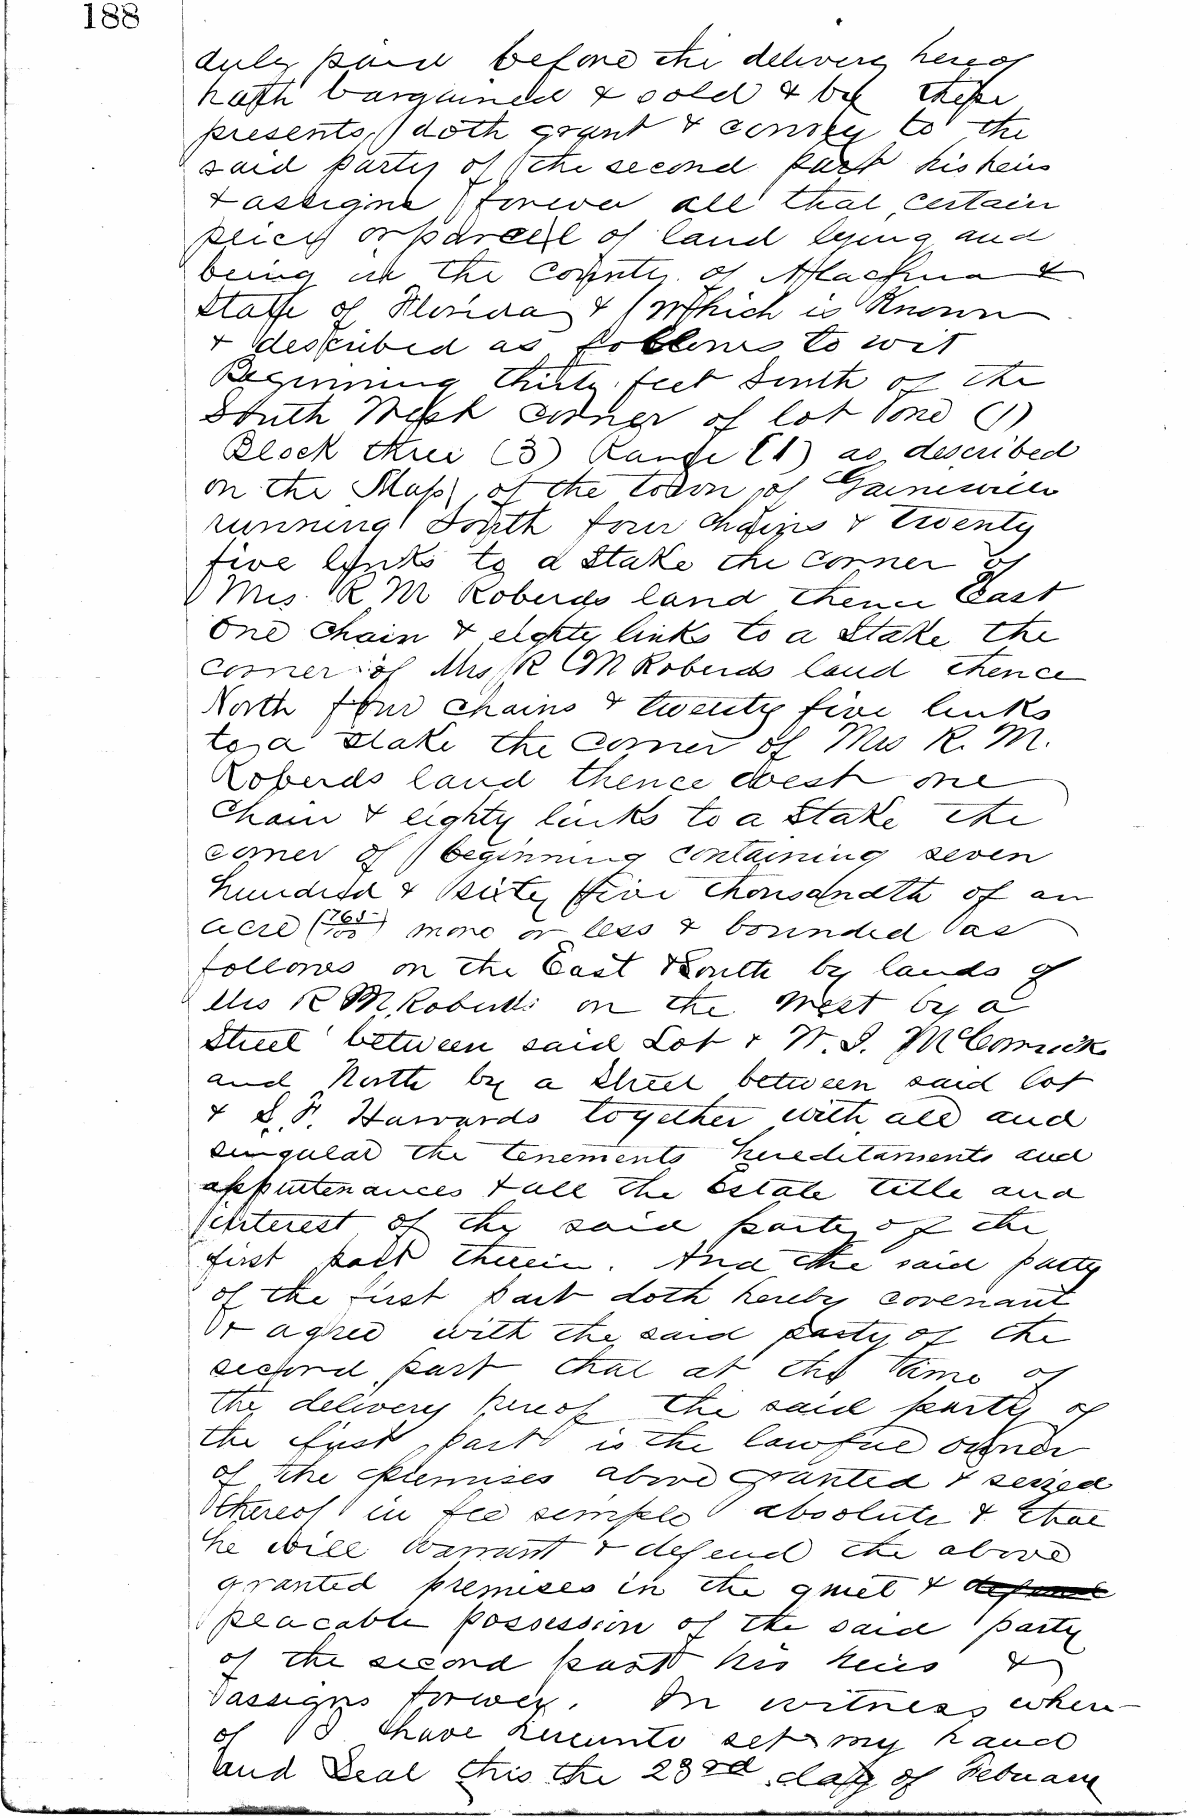 188
duly paid before the delivery hereof
hath bargained & sold & by these
presents doth grant & convey to the
said party of the second part his heirs
& assigns forever all that certain
peice or parcel of land lying and
being in the county of Alachua &
State of Florida & which is Known
& described as follows to wit
Beginning thirty feet South of the
South West corner of lot one (1)
Block three (3) Range (1) as described
on the Map of the town of Gainesville
running South four chains & twenty
five links to a Stake the corner of
Mrs. R M Roberds land thence East
One chain & eighty links to a Stake the
corner of Mrs R M Roberds land thence
North four chains & twenty five links
to a Stake the corner of Mrs R. M.
Roberds land thence west one
Chain & eighty links to a Stake the
corner of beginning containing seven
hundred & sixty five thousandth of an
acre (765/100) more or less & bounded as
follows on the East & South by lands of
Mrs R M Roberds on the West by a
Street between said Lot & W. I. McCormick
and North by a Street between said lot
& S. F. Harvards together with all and
singular the tenements hereditaments and
appurtenances & all the Estate title and
interest of the said party of the
first part therein. And the said party
of the first part doth hereby covenant
& agree with the said party of the
second part that at the time of
the delivery hereof the said party of
the first part is the lawful owner
of the premises above granted & seized
thereof in fee simple absolute & that
he will warrant & defend the above
granted premises in the quiet & defend
peacable possession of the said party
of the second part his heirs &
assigns forever. In witness where
of I have hereunto set my hand
and Seal this the 23rd day of Febuary